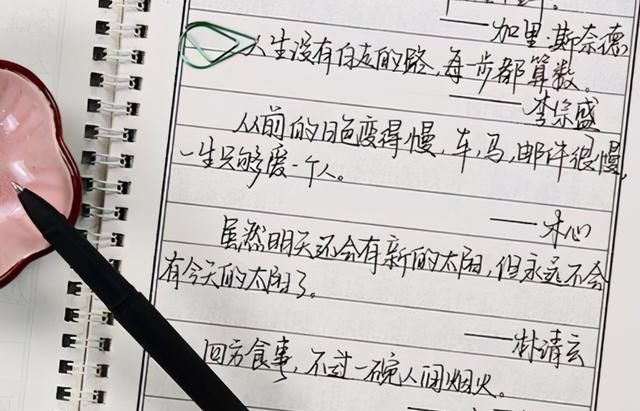 ——加里·斯奈德
人生没有白走的路,每步都算数。
——李宗盛
从前的日色变得慢,车,马,邮件很慢,
一生只够爱一个人。
——木心
虽然明天还会有新的太阳,但永远不会
有今天的太阳了。
——林清玄
四方食事,不过一碗人间烟火。